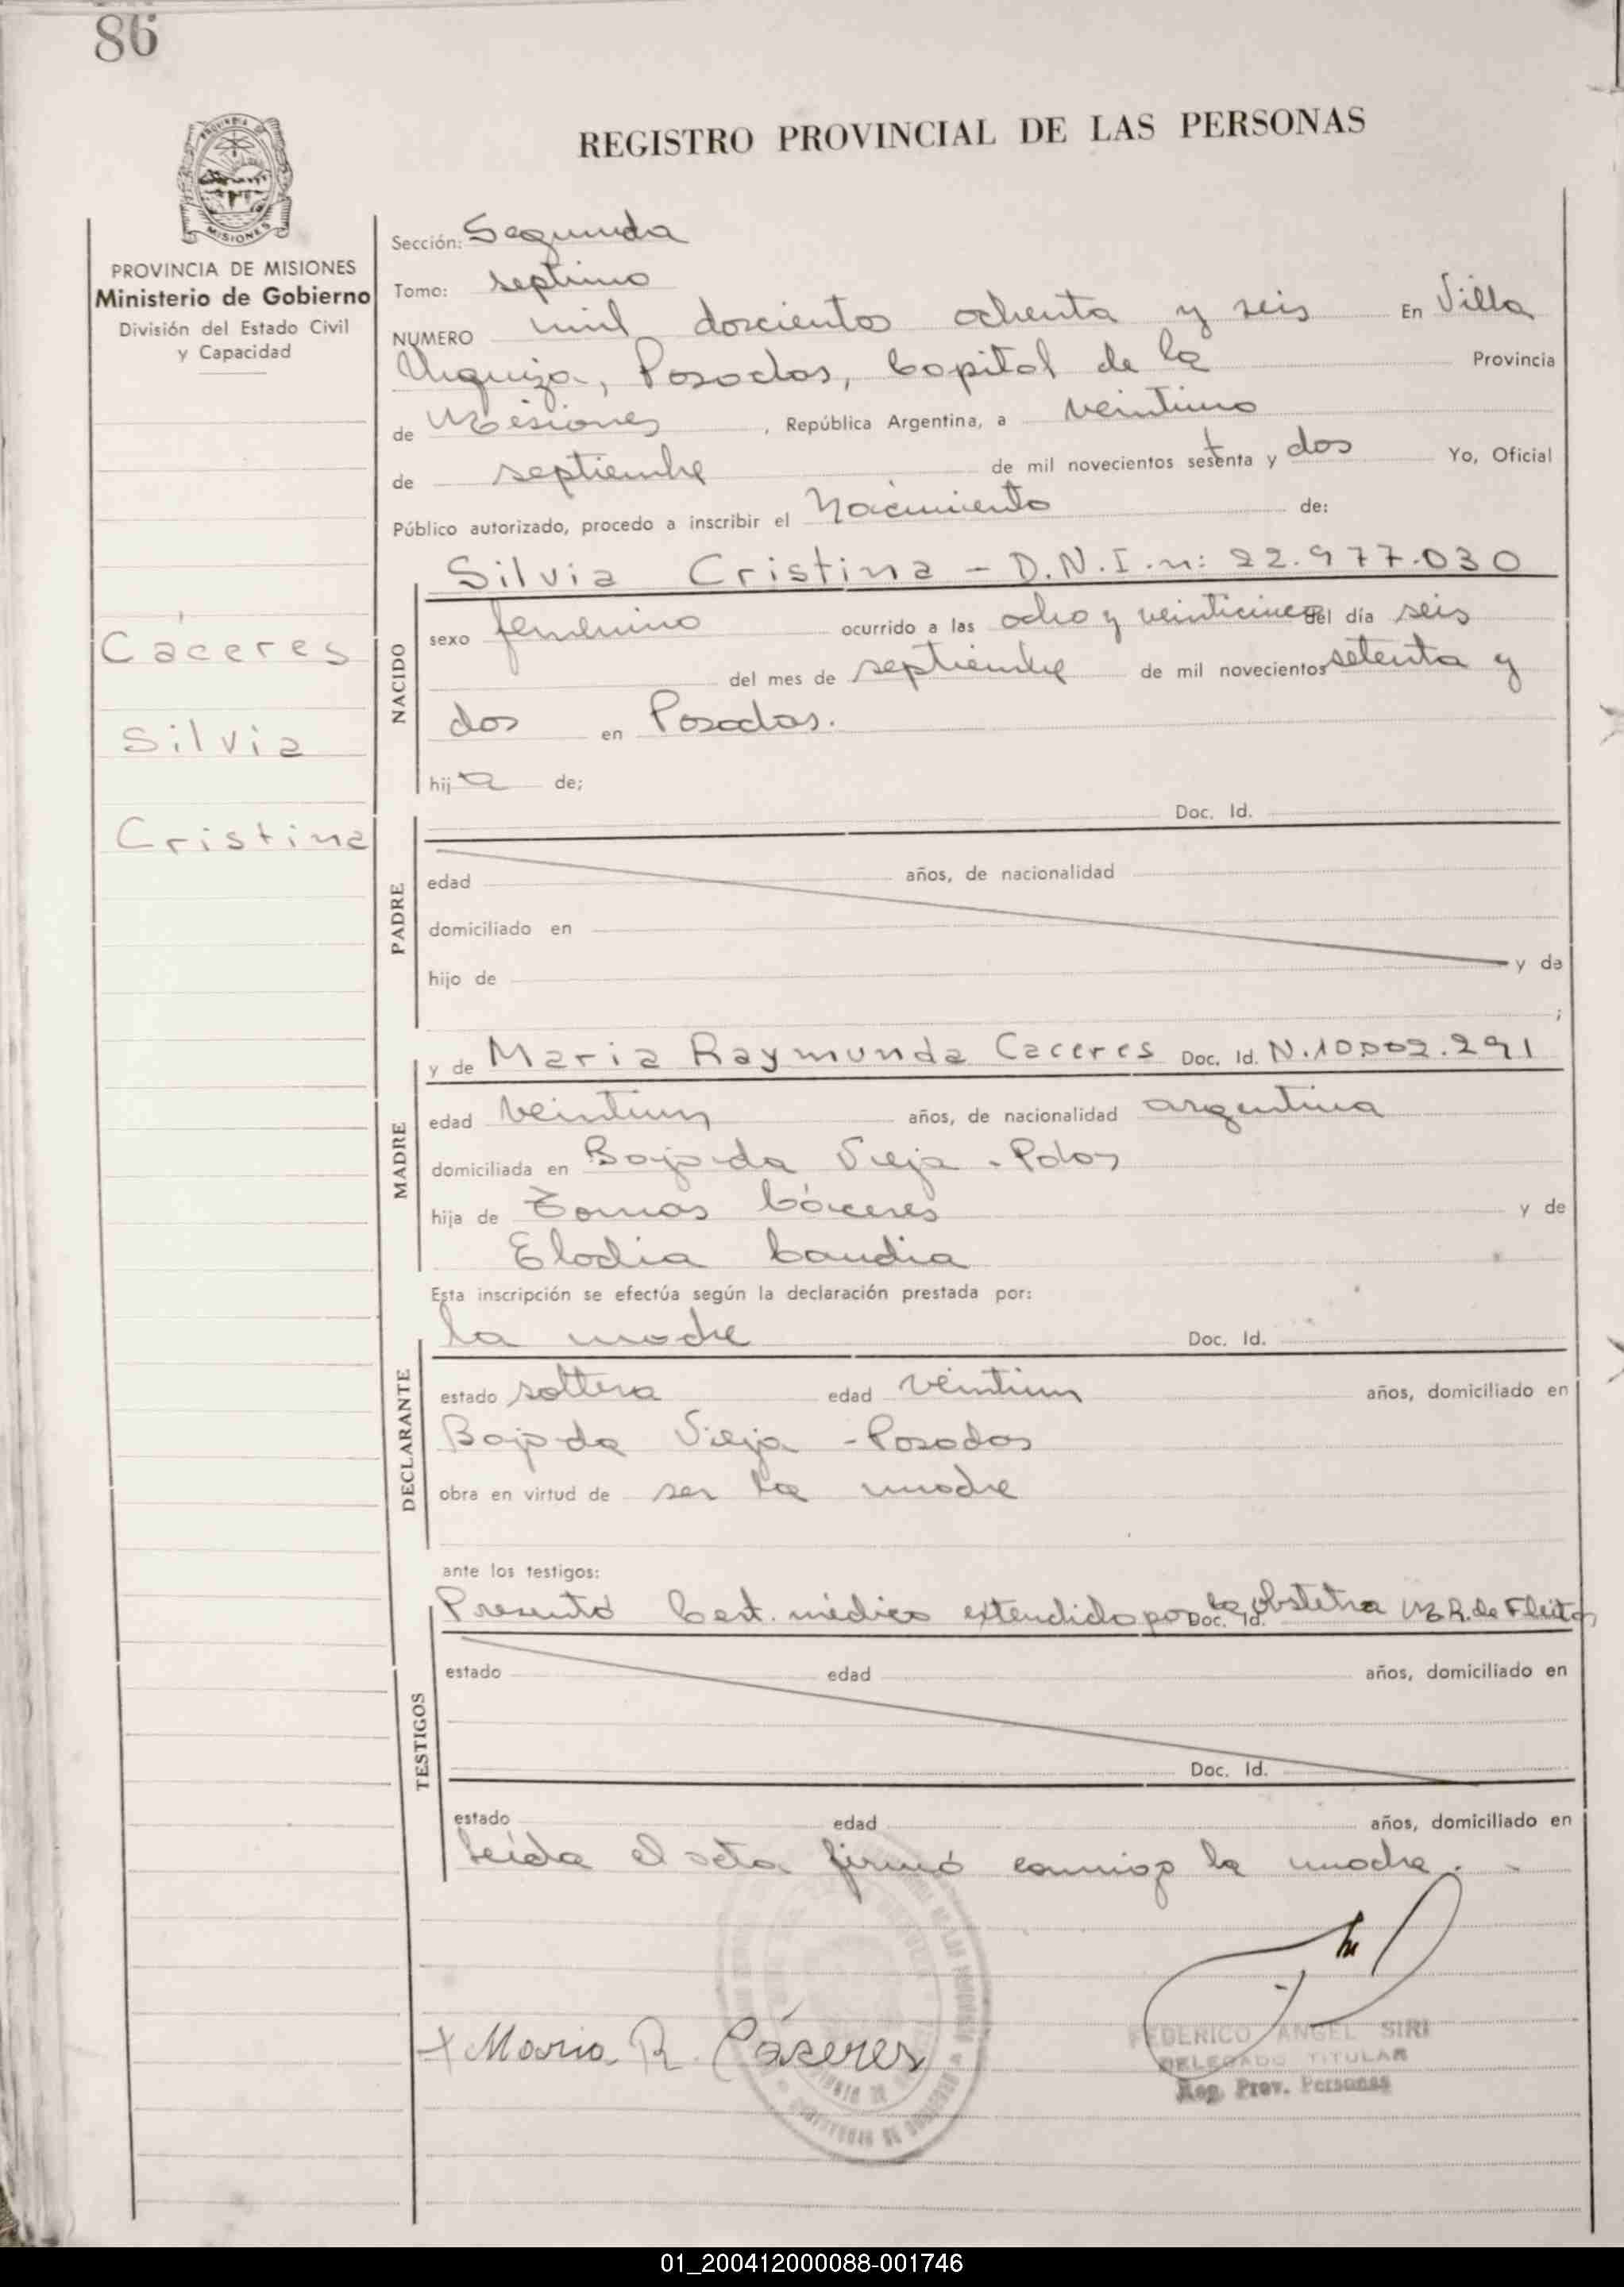 86
REGISTRO PROVINCIAL DE LAS PERSONAS
MISIONES
PROVINCIA DE MISIONES
Ministerio de Gobierno
División del Estado Civil
y Capacidad
Cáceres
Silvia
Cristina
Sección: Segunda
Tomo: septimo
NUMERO mil doscientos ochenta y seis En Villa
Urquiza, Posadas, Capital de la Provincia
de Misiones, República Argentina, a veintiuno
de septiembre de mil novecientos setenta y dos Yo, Oficial
Público autorizado, procedo a inscribir el Nacimiento de:
NACIDO
Silvia Cristina - D.N.I.n: 22.977.030
sexo femenino ocurrido a las ocho y veinticinco del día seis
del mes de septiembre de mil novecientos setenta y
dos en Posadas.
hija de;
PADRE
Doc. Id.
edad años, de nacionalidad
domiciliado en
hijo de y de
;
MADRE
y de Maria Raymunda Caceres Doc. Id. N.10.002.291
edad veintiun años, de nacionalidad argentina
domiciliada en Bajada Vieja - Pdas
hija de Tomas Cáceres y de
Elodia Candia
Esta inscripción se efectúa según la declaración prestada por:
DECLARANTE
la madre Doc. Id.
estado soltera edad veintiun años, domiciliado en
Bajada Vieja - Posadas
obra en virtud de ser la madre
ante los testigos:
TESTIGOS
Presentó Cert. médico extendido por la obstetra Doc. Id. R. de Fleitas
estado edad años, domiciliado en
Doc. Id.
estado edad años, domiciliado en
Leída el acta firmó conmigo la madre.
+ Maria R. Cáceres
FEDERICO ANGEL SIRI
DELEGADO TITULAR
Reg. Prov. Personas
01_200412000088-001746